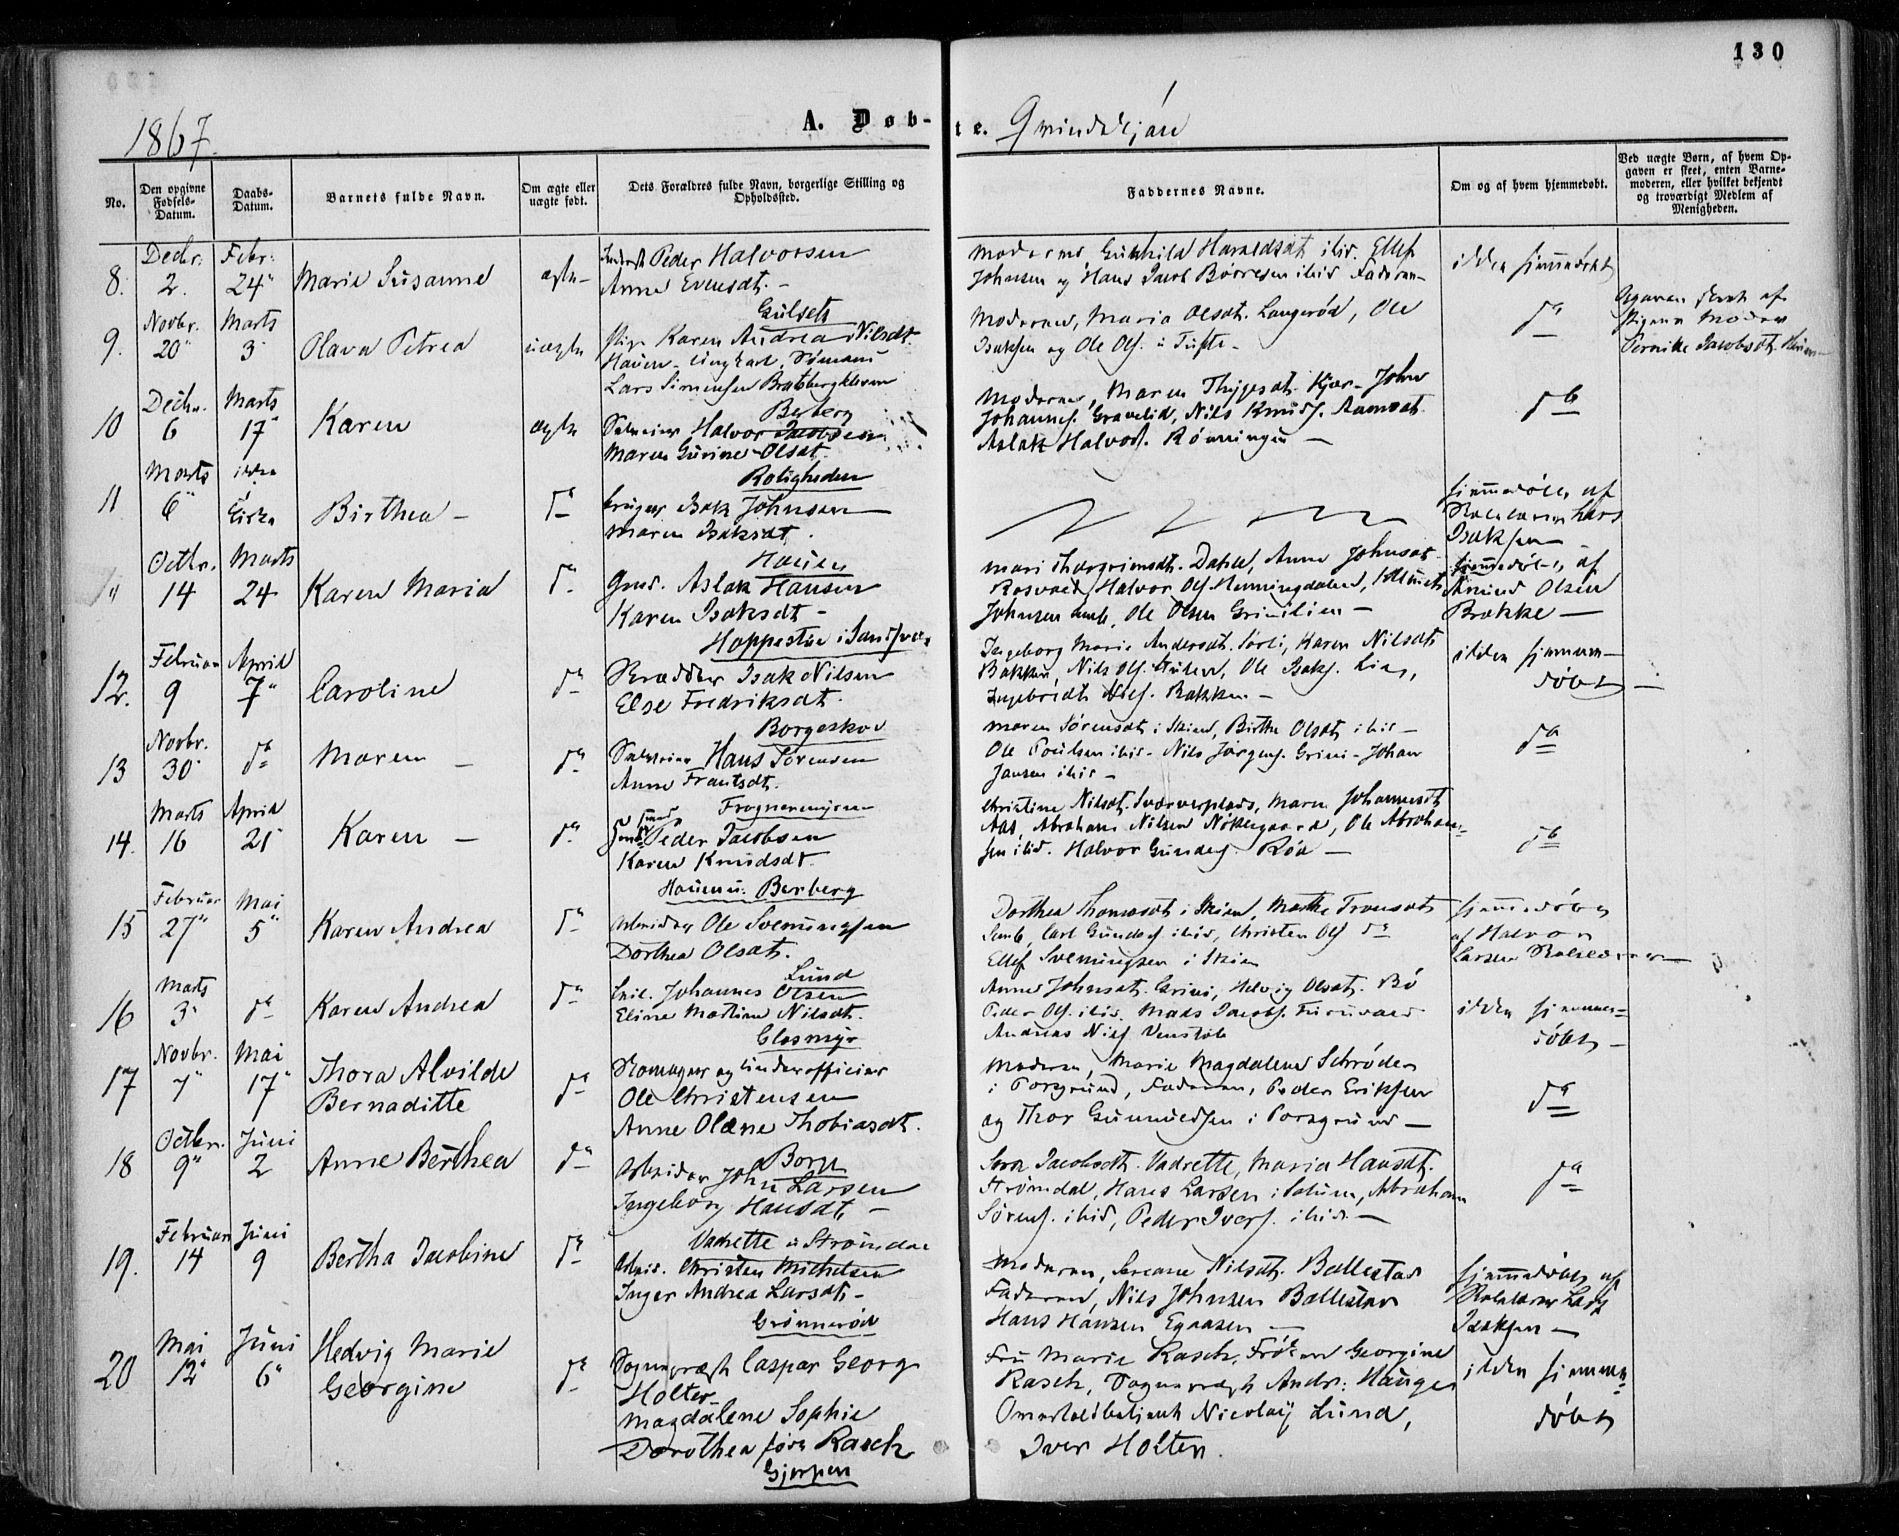 130
1867.
A. Døb-te. Qvindekjøn
No.
Den opgivne Fødsels-Datum.
Daabs-Datum.
Barnets fulde Navn.
Om ægte eller uægte født.
Dets Forældres fulde Navn, borgerlige Stilling og Opholdssted.
Faddernes Navne.
Om og af hvem hjemmedøbt.
Ved uægte Børn, af hvem Op-
gaven er skeet, enten Barne-
moderen, eller hvilket bekjendt
og troværdigt Medlem af
Menigheden.
8. Decbr. 2. Febr. 24 Marie Susanne ægte
Peder Halvorsen
Anne Evensdt.
Gulsets
Moderen, Gunhild Haraldsdt ibid. Ellef
Johnsen og Hans Jacob Børresen ibid Faderen
ikke hjemmedøbt
9. Novbr. 20 Marts 3 Olava Petrea uægte
Pige Karen Andrea Nilsdt.
Hauen - Ungkarl, Sømand
Lars Simensen Bratsbergkleven
Moderen, Maria Olsdt. Langerød, Ole
Isaksen og Ole Ols. u Tufte
do
Opgaven skeet af
Pigens Moder
Pernike Jacobsdt. Hauen
10 Decbr. 6 Marts 17 Karen ægte
Selveier Halvor Jacobsen Berberg
Maren Gurine Olsdt.
Roligheden
Moderen, Maren Thygesdt. Kjær - John
Johannes. Gravelid, Nils Knuds. Aamodt
Aslak Halvors. Rønningen
do
11 Marts 6 ikke kirke Birthea do
Bruger Isak Johnsen
Maren Isaksdt.
Hauen
hjemmedøbt af
Kirkesanger Lars
Isaksen
Octbr. 14 Marts 24 Karen Maria do
Gmd. Aslak Hansen
Karen Isaksdt
Hoppestad i Sandsvær
Mari Thorgrimsdt. Dahle, Anne Johnsdt
Rosvald, Halvor Ols. Henningdalen,
Johnsen Semb, Ole Olsen Grinilien
hjemmedøbt af
Amund Olsen
Brække
12. Februar 9 April 7 Caroline do
Isak Nilsen
Else Fredriksdt.
Borgeskov
Ingeborg Marie Andersdt. Sørli, Karen Nilsdt
Bakken, Nils Ols. Hulen, Ole Isaks. Lia,
Ingebrigt Nils. Bakken
ikke hjemme-
døbt
13 Novbr. 30 do Maren do
Selveier Hans Sørensen
Anne Frantsdt.
Frognermyren
Maren Sørensdt i Skien, Birthe Olsdt ibid
Ole Poulsen ibid - Nils Jørgens. Grini - Johan
Jansen ibid
do
14. Marts 16 April 21 Karen do
Peder Jacobsen
Karen Knudsdt.
Hauen u. Berberg
Christine Nilsdt. Sværverplads, Maren Johannesdt
Aas, Abraham Nilsen Nøklegaard, Ole Abraham-
sen ibid. Halvor Gunders. Röa
do
15 Februar 27 Mai 5 Karen Andrea do
Arbeider Ole Sveningsen
Dorthea Olsdt.
Lund
Dorthea Thomasdt i Skien, Marthe Fransdt
Semb, Carl Gunders ibid, Christen Ols do
Ellef Sveningsen i Skien
hjemmedøbt
af Halvor
Larsen
16 Marts 3 do Karen Andrea do
Johannes Olsen
Eline Martine Nilsdt.
Glasmyr
Anne Johnsdt. Grini, Hedvig Olsdt. Bö
Peder Ols. ibid. Mads Jacobs. Furuvald
Andreas Nils Venstøb
ikke hjemme-
døbt
17 Novbr. 7 Mai 17 Thora Alvilde
Bernaditte do
Skomager og Underofficier
Ole Christensen
Anne Olæne Thobiasdt.
Borge
Moderen, Marie Magdalene Schrøder
i Porsgrund, Faderen, Peder Eriksen
og Thor Gunnuldsen i Porsgrund
do
18 Octbr. 9 Juni 2 Anne Berthea do
Arbeider John Larsen
Ingeborg Hansdt.
Vadrette u Strømdal
Sara Jacobsdt. Vadrette, Maria Hansdt.
Strømdal, Hans Larsen i Solum, Abraham
Sørens. ibid, Peder Ivers. ibid
do
19. Februar 14 Juni 9 Bertha Jacobine do
Arbeid. Christen Michelsen
Inger Andrea Larsdt.
Grønnerød
Moderen, Serene Nilsdt. Ballestad
Faderen, Nils Johnsen Ballestad
Hans Hansen Egaasen
hjemmedøbt af
Kirkesanger Lars
Isaksen
20 Mai 12 Juni 6 Hedvig Marie
Georgine do
Sognepræst Caspar Georg
Holter
Magdalene Sophie
Dorothea født Rasch
Gjerpen
Fru Marie Rasch, Frøken Georgine
Rasch, Sognepræst Andr: Hauge
Overtoldbetjent Nicolay Lund,
Iver Holter.
ikke hjemme-
døbt